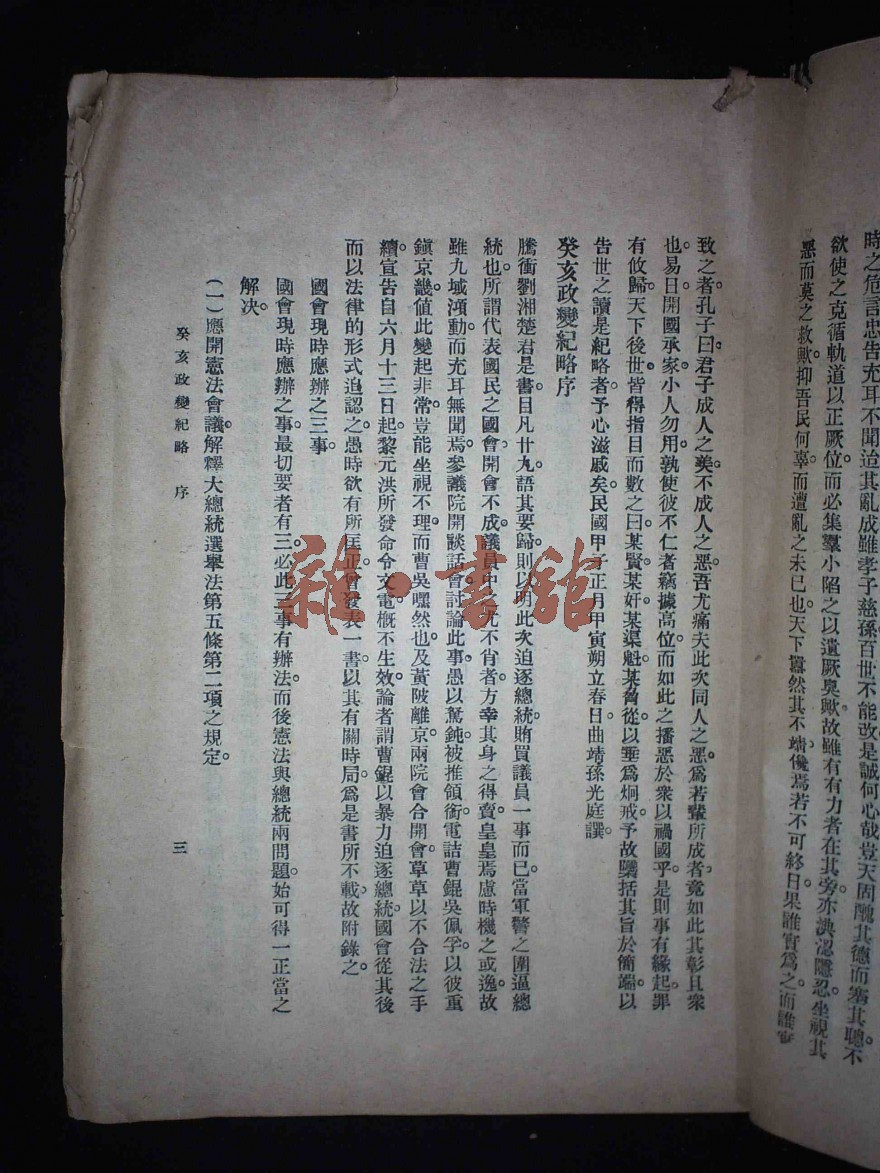 時之危言忠告充耳不聞迨其亂成雖孝子慈孫百世不能改是誠何心哉豈天固醜其德而塞其聰不
欲使之克循軌道以正厥位而必集羣小陷之以遺厥輿歟故雖有有力者在其旁亦淟涊隱忍坐視其
惡而莫之救歟抑吾民何辜而遭亂之未已也天下囂然其不靖儳焉若不可終日果誰實爲之而誰
致之者孔子曰君子成人之美不成人之惡吾尤痛夫此次同人之惡爲若輩所成者竟如此其彰且衆
也易曰開國承家小人勿用孰使彼不仁者竊據高位而如此之播惡於衆以禍國乎是則事有緣起罪
有攸歸天下後世皆得指目而數之曰某賢某奸某渠魁某脅從以垂爲炯戒予故隱括其旨於簡端以
告世之讀是紀略者予心滋戚矣民國甲子正月甲寅朔立春日曲靖孫光庭譔
癸亥政變紀略序
騰衝劉湘楚君是書目凡廿九語其要歸則以明此次迫逐總統賄買議員一事而已當軍警之圍逼總
統也所謂代表國民之國會開會不成議員中之尤不肖者方幸其身之得賣皇皇焉慮時機之或逸故
雖九域鴻動而充耳無聞焉參議院開談話會討論此事愚以駑鈍被推領銜電詰曹錕吳佩孚以彼重
鎭京畿值此變起非常豈能坐視不理而曹吳嘿然也及黃陂離京兩院會合開會草草以不合法之手
續宣告自六月十三日起黎元洪所發命令文電槪不生效論者謂曹錕以暴力迫逐總統國會從其後
而以法律的形式追認之愚時欲有所匡正會發表一書以其有關時局爲是書所不載故附錄之
國會現時應辦之三事
國會現時應辦之事最切要者有三必此三事有辦法而後憲法與總統兩問題始可得一正當之
解決
(一)應開憲法會議解釋大總統選舉法第五條第二項之規定
癸亥政變紀略 序
三
雜·書館